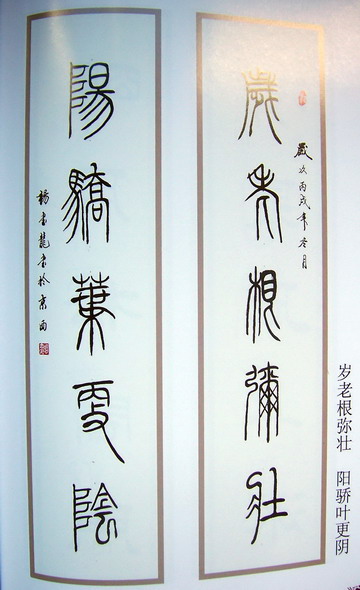 岁老根弥壮 阳骄叶更阴
歲次丙戌年冬月
歲老根彌壯
陽驕葉更陰
龍書於京